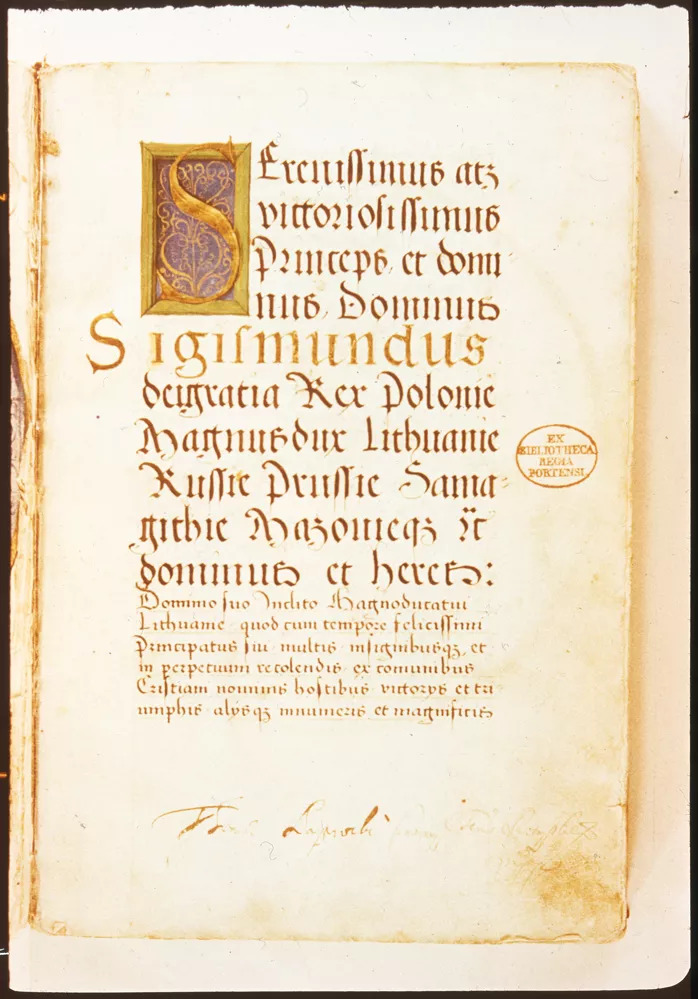 SErenissimus atq3
victoriosissimus
Princeps et domi
nus, Dominus
Sigismundus
dei gratia Rex Polonie
Magnus dux Lithuanie
Russie Prussie Sama-
githie Mazonieq3 ꝛc
dominus et heres:
Domino suo Inclito Magnoducatui
Lithuanie quod cum tempore felicissimi
Principatus sui multis insignibusq3, et
in perpetuum recolendis ex comunibus
Cristiani nominis hostibus victorys et tri
umphis alysq3 innumeris et magnificis
EX
BIBLIOTHECA
REGIA
PORTENSI